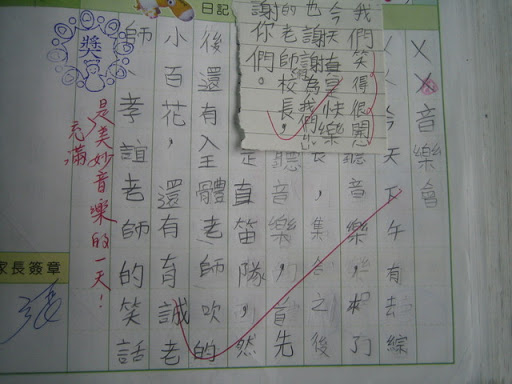 日記
音樂會
今天下午有去綜
聽音樂，來了
，集合之後
聽音樂，首先
是直笛隊，然
後還有全體老師吹的
小百花，還有育誠老
師、孝誼老師的笑話
我們笑得很開
今天真是快樂
的老師校長，
謝你們。
獎
是美妙音樂的一天！
充滿
家長簽章